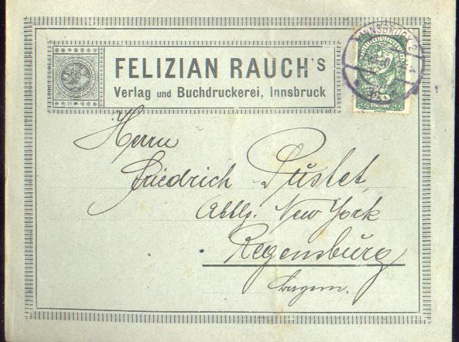 FELIZIAN RAUCH'S
Verlag und Buchdruckerei, Innsbruck
INNSBRUCK 2
Herrn
Friedrich Pustet,
Abtlg. New York
Regensburg
Bayern.